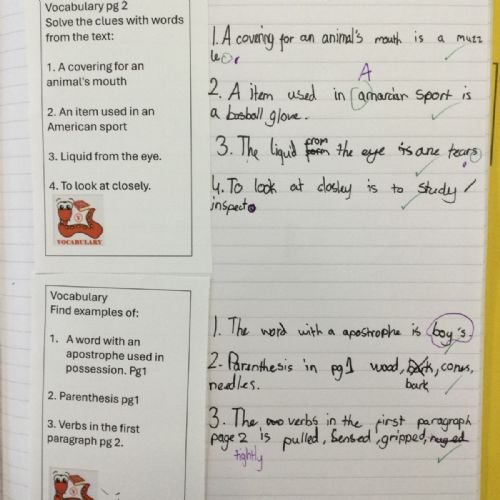 Vocabulary pg 2
Solve the clues with words
from the text:
1. A covering for an
animal's mouth
2. An item used in an
American sport
3. Liquid from the eye.
4. To look at closely.
VOCABULARY
1. A covering for an animal's mouth is a muzz
le.
A
2. A item used in amarcian sport is
a basball glove.
from
3. The liquid form the eye is are tears.
4. To look at closley is to study /
inspect.
Vocabulary
Find examples of:
1. A word with an
apostrophe used in
possession. Pg1
2. Parenthesis pg1
3. Verbs in the first
paragraph pg 2.
1. The word with a apostrophe is boy's.
2. Paranthesis in pg1 wood, bark, cones,
bark
needles.
3. The verbs in the first paragraph
page 2 is pulled, sensed, gripped,
tightly